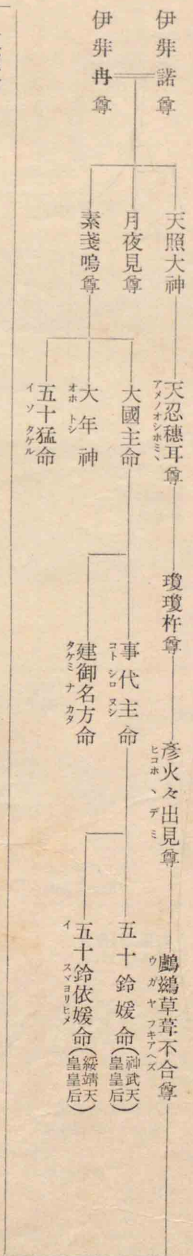 伊弉諾尊
伊弉冉尊
天照大神
月夜見尊
素戔嗚尊
天忍穗耳尊
アメノオシホミヽ
大國主命
大年神
オホトシ
五十猛命
イソタケル
瓊瓊杵尊
事代主命
コトシロヌシ
建御名方命
タケミナカタ
彥火々出見尊
ヒコホヽデミ
鸕鷀草葺不合尊
ウガヤフキアヘズ
五十鈴媛命(神武天皇皇后)
五十鈴依媛命(綏靖天皇皇后)
イスヾヨリヒメ